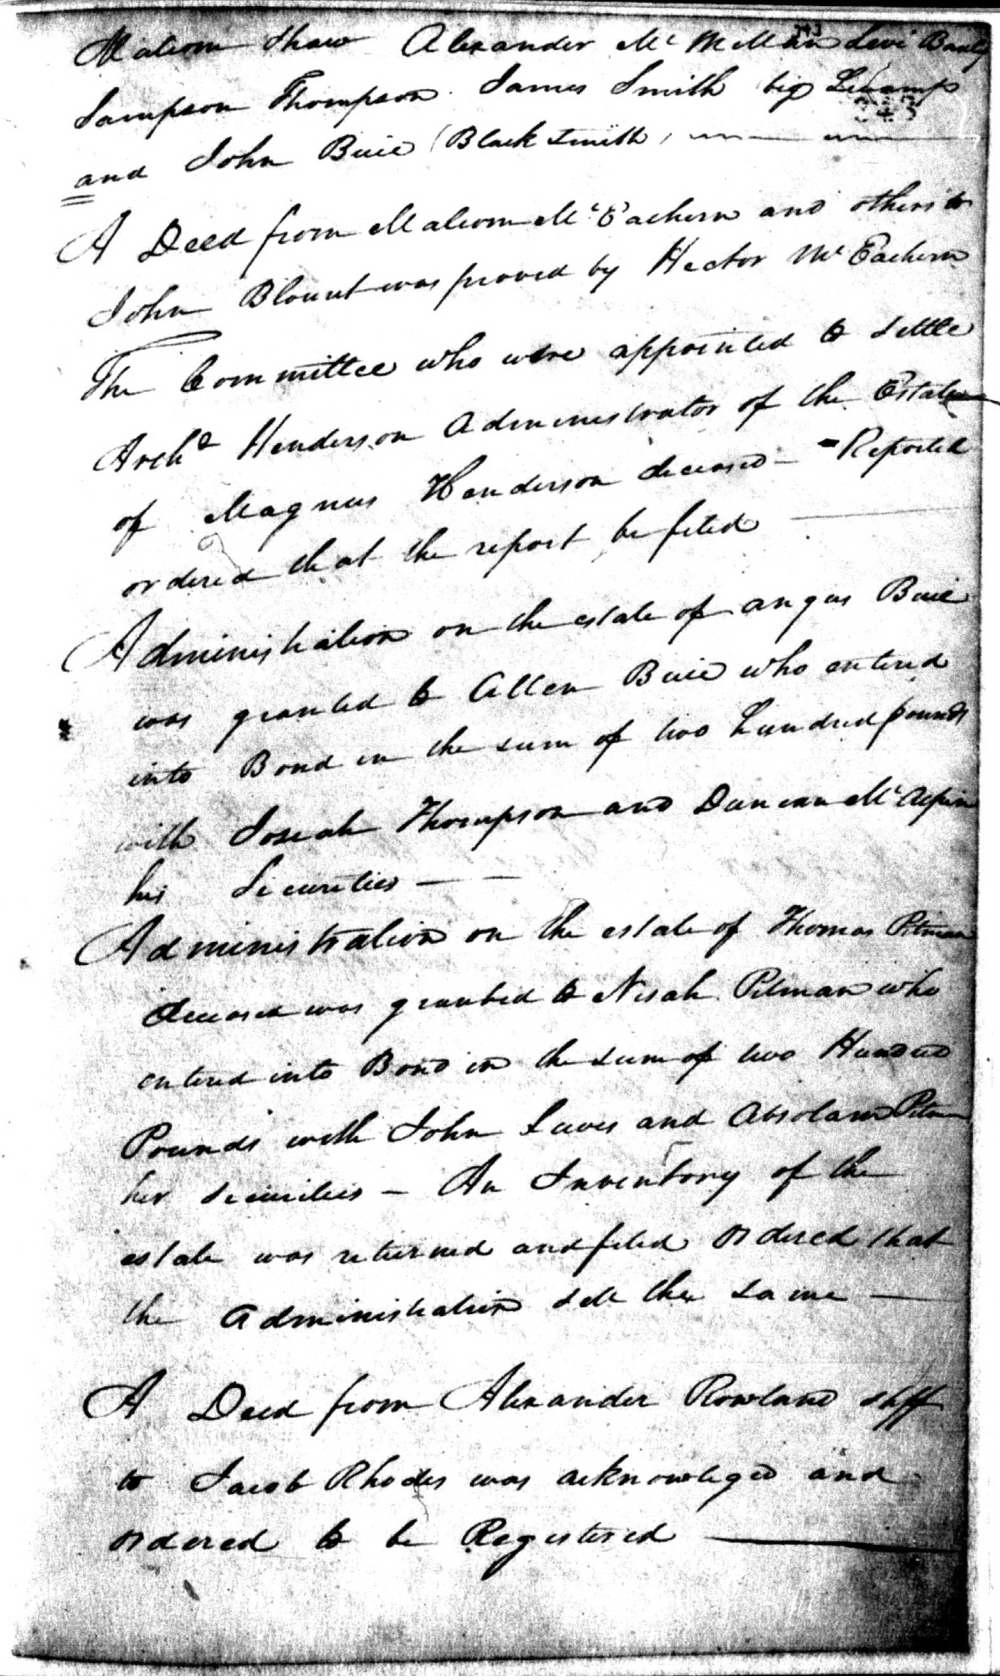 Malcom Shaw Alexander Mc Millan Levi Baully
343
Sampson Thompson James Smith big
343
and John Buie (Black Smith)
A Deed from Malcom Mc Eachern and others to
John Blount was proved by Hector Mc Eachern
The Committee who were appointed to Settle
Archd Henderson Administrator of the Estate
of Magnus Henderson deceased - Reported
ordered that the report be filed
Administration on the estate of angus Buie
was granted to Allen Buie who entered
into Bond in the sum of two hundred pounds
with Josiah Thompson and Duncan Mc Alpin
his Securities
Administration on the estate of Thomas Pitman
deceased was granted to Nisah Pitman who
entered into Bond in the sum of two Hundred
Pounds with John and Absolam Pitman
her Securities - An Inventory of the
estate was returned and filed ordered that
the Administratrix Sell the Same
A Deed from Alexander Rowland shff
to Jacob Rhodes was acknowleged and
ordered to be Registered